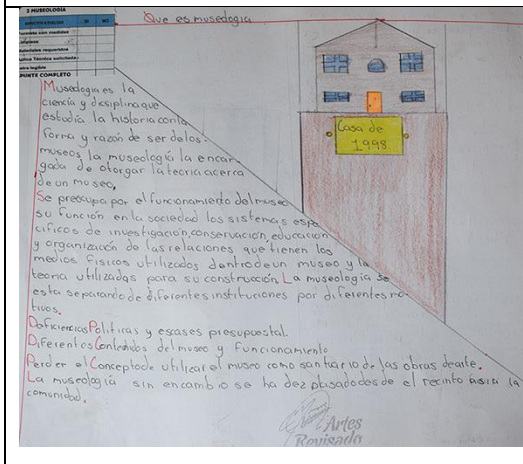 2 MUSEOLOGÍA
SI NO
Formato con medidas
Limpieza
Materiales requeridos
Aplica Técnica solicitada
Letra legible
APUNTE COMPLETO
Que es musedogia
Musedogia es la
ciencia y disiplina que
estudia la historia con la
forma y razón de ser de los
museos la museología la encar-
gada de otorgar la teoria acerca
de un museo.
Se preocupa por el funcionamiento del museo
su función en la sociedad los sistemas espe
cíficos de investigación, conservación, educación
y organización de las relaciones que tienen los
medios físicos utilizados dentro de un museo y la
teoria utilizados para su construcción. La museología se
esta separando de diferentes instituciones por diferentes mo-
tivos.
Deficiencias Politicas y escases presupuestal.
Diferentes Contenidos del museo y funcionamiento
Perder el Concepto de utilizar el museo como santiario de las obras de arte.
La museología sin encambio se ha dezplasado desde el recinto asia la
comunidad.
Casa de
1998
Artes
Revisado